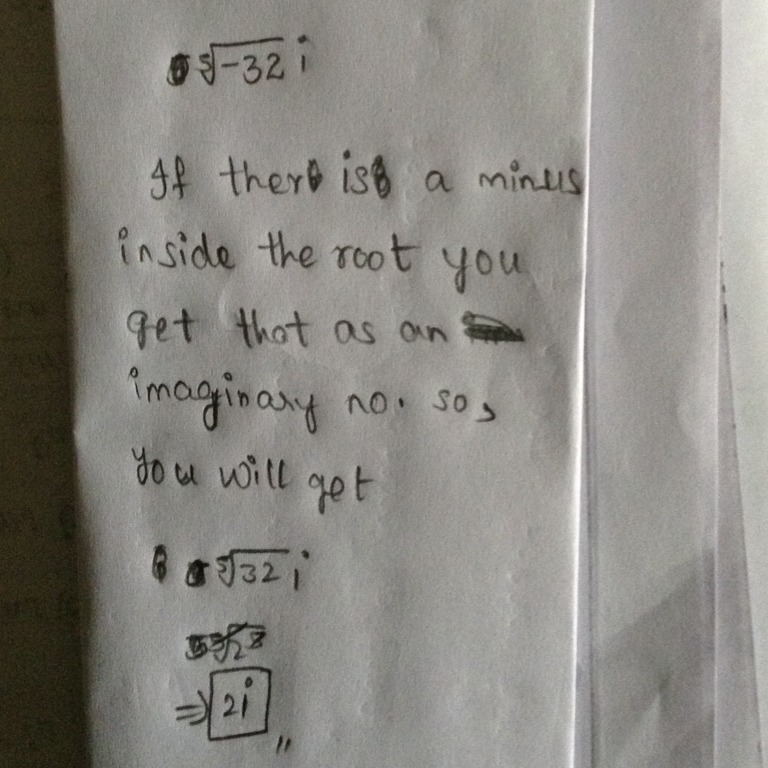 ⁵√-32 i
If there is a minus
inside the root you
get that as an
imaginary no. so,
you will get
⁵√32 i
⇒ 2i